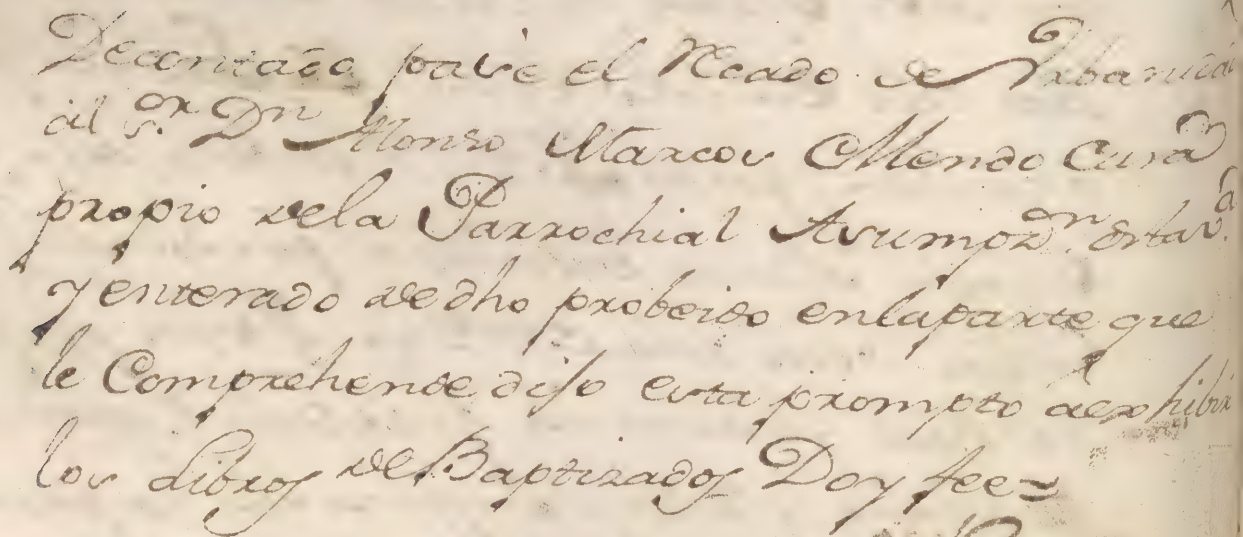 Decontado pasé el Recado de Urbanidad
al S.or Dn Alonso Marcos Mendo Cura
propio dela Parrochial Asumpz.on
y enterado dedho probeido enlaparte que
le Comprehende dijo esta prompto aexhibir
los Libros de Baptizados Doy fee=